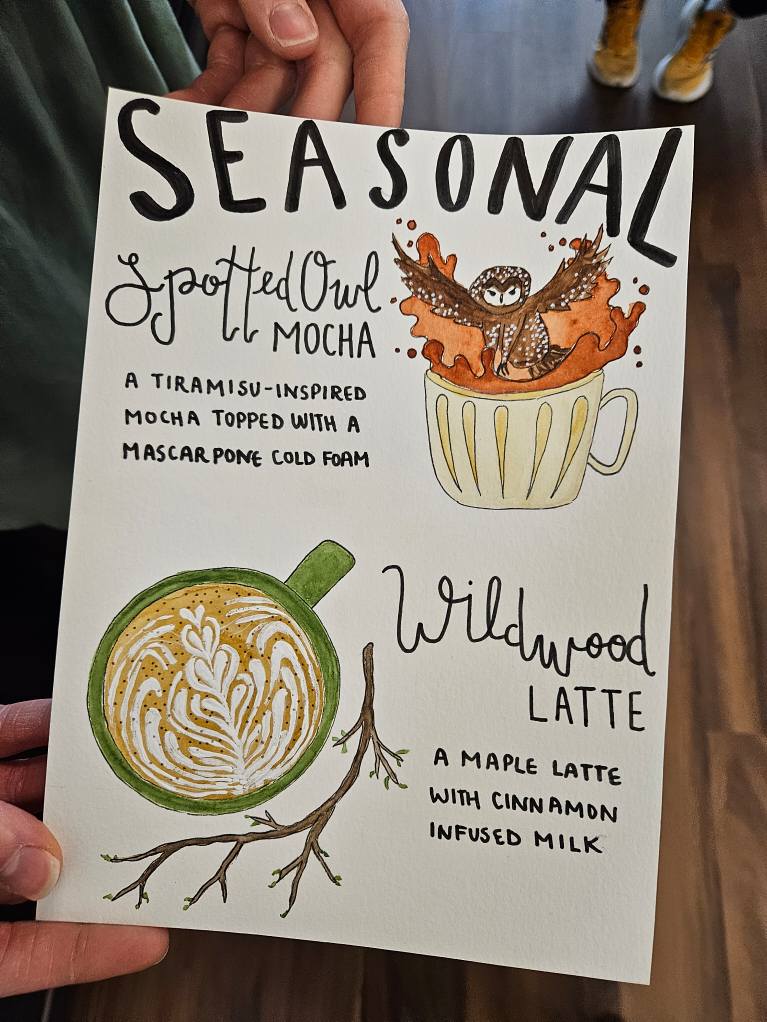 SEASONAL
Spotted Owl
MOCHA
A TIRAMISU-INSPIRED
MOCHA TOPPED WITH A
MASCARPONE COLD FOAM
Wildwood
LATTE
A MAPLE LATTE
WITH CINNAMON
INFUSED MILK